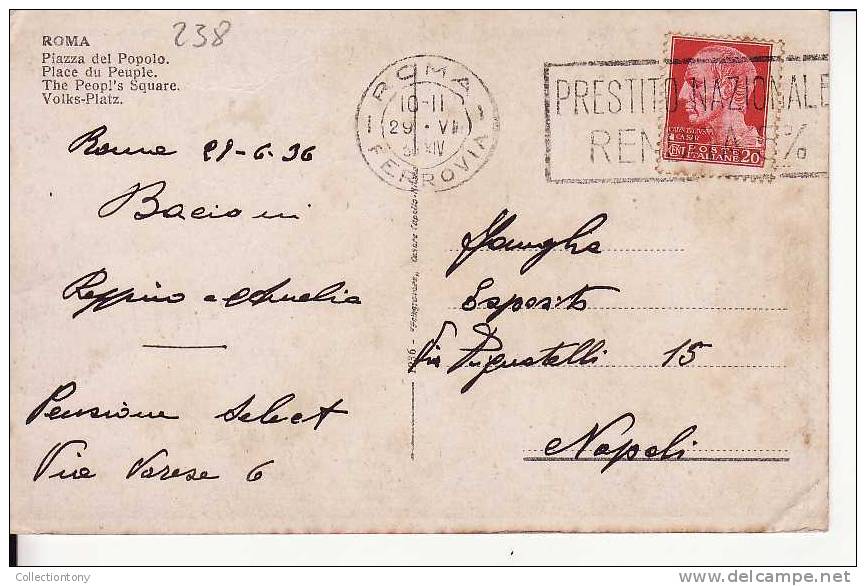 ROMA
Piazza del Popolo.
Place du Peuple.
The Peopl's Square.
Volks-Platz.
238
ROMA
10-11
29 · VI
XIV
FERROVIA
PRESTITO NAZIONALE
REN %
POSTE
ITALIANE
CENT 20
Roma 29-6-36
Bacioni
Peppino e Amelia
Pensione Select
Via Varese 6
1936
Famiglia
Esposito
Via Pignatelli 15
Napoli
Collectiontony
delcampe.net